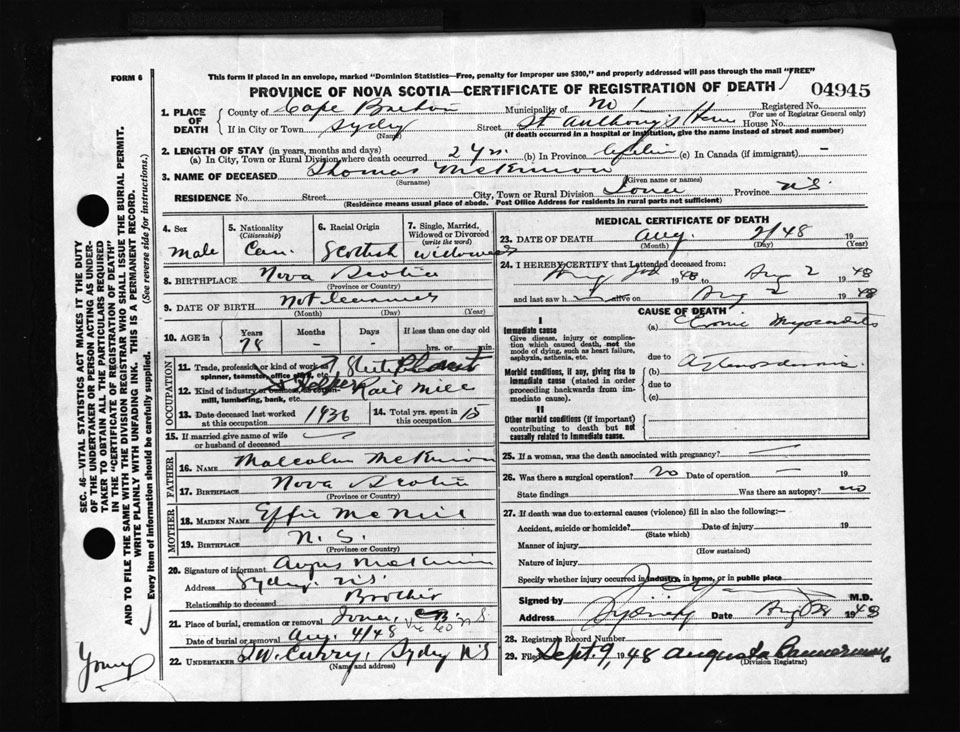 FORM 6
This form if placed in an envelope, marked "Dominion Statistics—Free, penalty for improper use $300," and properly addressed will pass through the mail "FREE"
PROVINCE OF NOVA SCOTIA—CERTIFICATE OF REGISTRATION OF DEATH
04945
1. PLACE OF DEATH
County of Cape Breton Municipality of No 1 Registered No.
(For use of Registrar General only)
If in City or Town Sydney Street St Anthony's Home House No.
(Name) (If death occurred in a hospital or institution, give the name instead of street and number)
2. LENGTH OF STAY (in years, months and days)
(a) In City, Town or Rural Division where death occurred 2 yrs. (b) In Province (c) In Canada (if immigrant) —
3. NAME OF DECEASED Thomas McKinnon
(Surname) (Given name or names)
RESIDENCE No. Street City, Town or Rural Division Iona Province N.S.
(Residence means usual place of abode. Post Office Address for residents in rural parts not sufficient)
4. Sex 5. Nationality 6. Racial Origin 7. Single, Married, Widowed or Divorced
(Citizenship) (write the word)
Male Can. Scottish Widowed
8. BIRTHPLACE Nova Scotia
(Province or Country)
9. DATE OF BIRTH Not
(Month) (Day) (Year)
10. AGE in Years Months Days If less than one day old
78 - - hrs. or min.
OCCUPATION
11. Trade, profession or kind of work as spinner, teamster, office clerk, etc.
12. Kind of industry or business, as cotton mill, lumbering, bank, etc. Rail Mill
13. Date deceased last worked at this occupation 1936
14. Total yrs. spent in this occupation 15
15. If married give name of wife or husband of deceased
FATHER
16. NAME Malcolm McKinnon
17. BIRTHPLACE Nova Scotia
(Province or Country)
MOTHER
18. MAIDEN NAME Effie McNeil
19. BIRTHPLACE N. S.
(Province or Country)
20. Signature of informant Angus McKinnon
Address Sydney N.S.
Relationship to deceased Brother
21. Place of burial, cremation or removal Iona, C.B. N S
Date of burial or removal Aug. 4/48
22. UNDERTAKER T.W. Curry, Sydney NS
(Name and address)
MEDICAL CERTIFICATE OF DEATH
23. DATE OF DEATH Aug. 2/48 19
(Month) (Day) (Year)
24. I HEREBY CERTIFY that I attended deceased from:
1948 to Aug 2 1948
and last saw h alive on Aug 2 1948
CAUSE OF DEATH
I
Immediate cause
Give disease, injury or complication which caused death, not the mode of dying, such as heart failure, asphyxia, asthenia, etc.
(a) Chronic Myocarditis
due to
Morbid conditions, if any, giving rise to immediate cause (stated in order proceeding backwards from immediate cause).
(b)
due to
(c)
II
Other morbid conditions (if important) contributing to death but not causally related to immediate cause.
25. If a woman, was the death associated with pregnancy? —
26. Was there a surgical operation? No Date of operation — 19
State findings Was there an autopsy? no
27. If death was due to external causes (violence) fill in also the following:—
Accident, suicide or homicide? Date of injury 19
(State which)
Manner of injury
(How sustained)
Nature of injury
Specify whether injury occurred in industry, in home, or in public place
Signed by M.D.
Address Sydney Date Aug 1948
28. Registrar's Record Number
29. Filed Sept. 9, 1948 Augusta Bannerman
(Division Registrar)
SEC. 46—VITAL STATISTICS ACT MAKES IT THE DUTY
OF THE UNDERTAKER OR PERSON ACTING AS UNDER-
TAKER TO OBTAIN ALL THE PARTICULARS REQUIRED
IN THE "CERTIFICATE OF REGISTRATION OF DEATH"
AND TO FILE THE SAME WITH THE DIVISION REGISTRAR WHO SHALL ISSUE THE BURIAL PERMIT.
WRITE PLAINLY WITH UNFADING INK. THIS IS A PERMANENT RECORD.
Every item of information should be carefully supplied. (See reverse side for instructions.)
Young